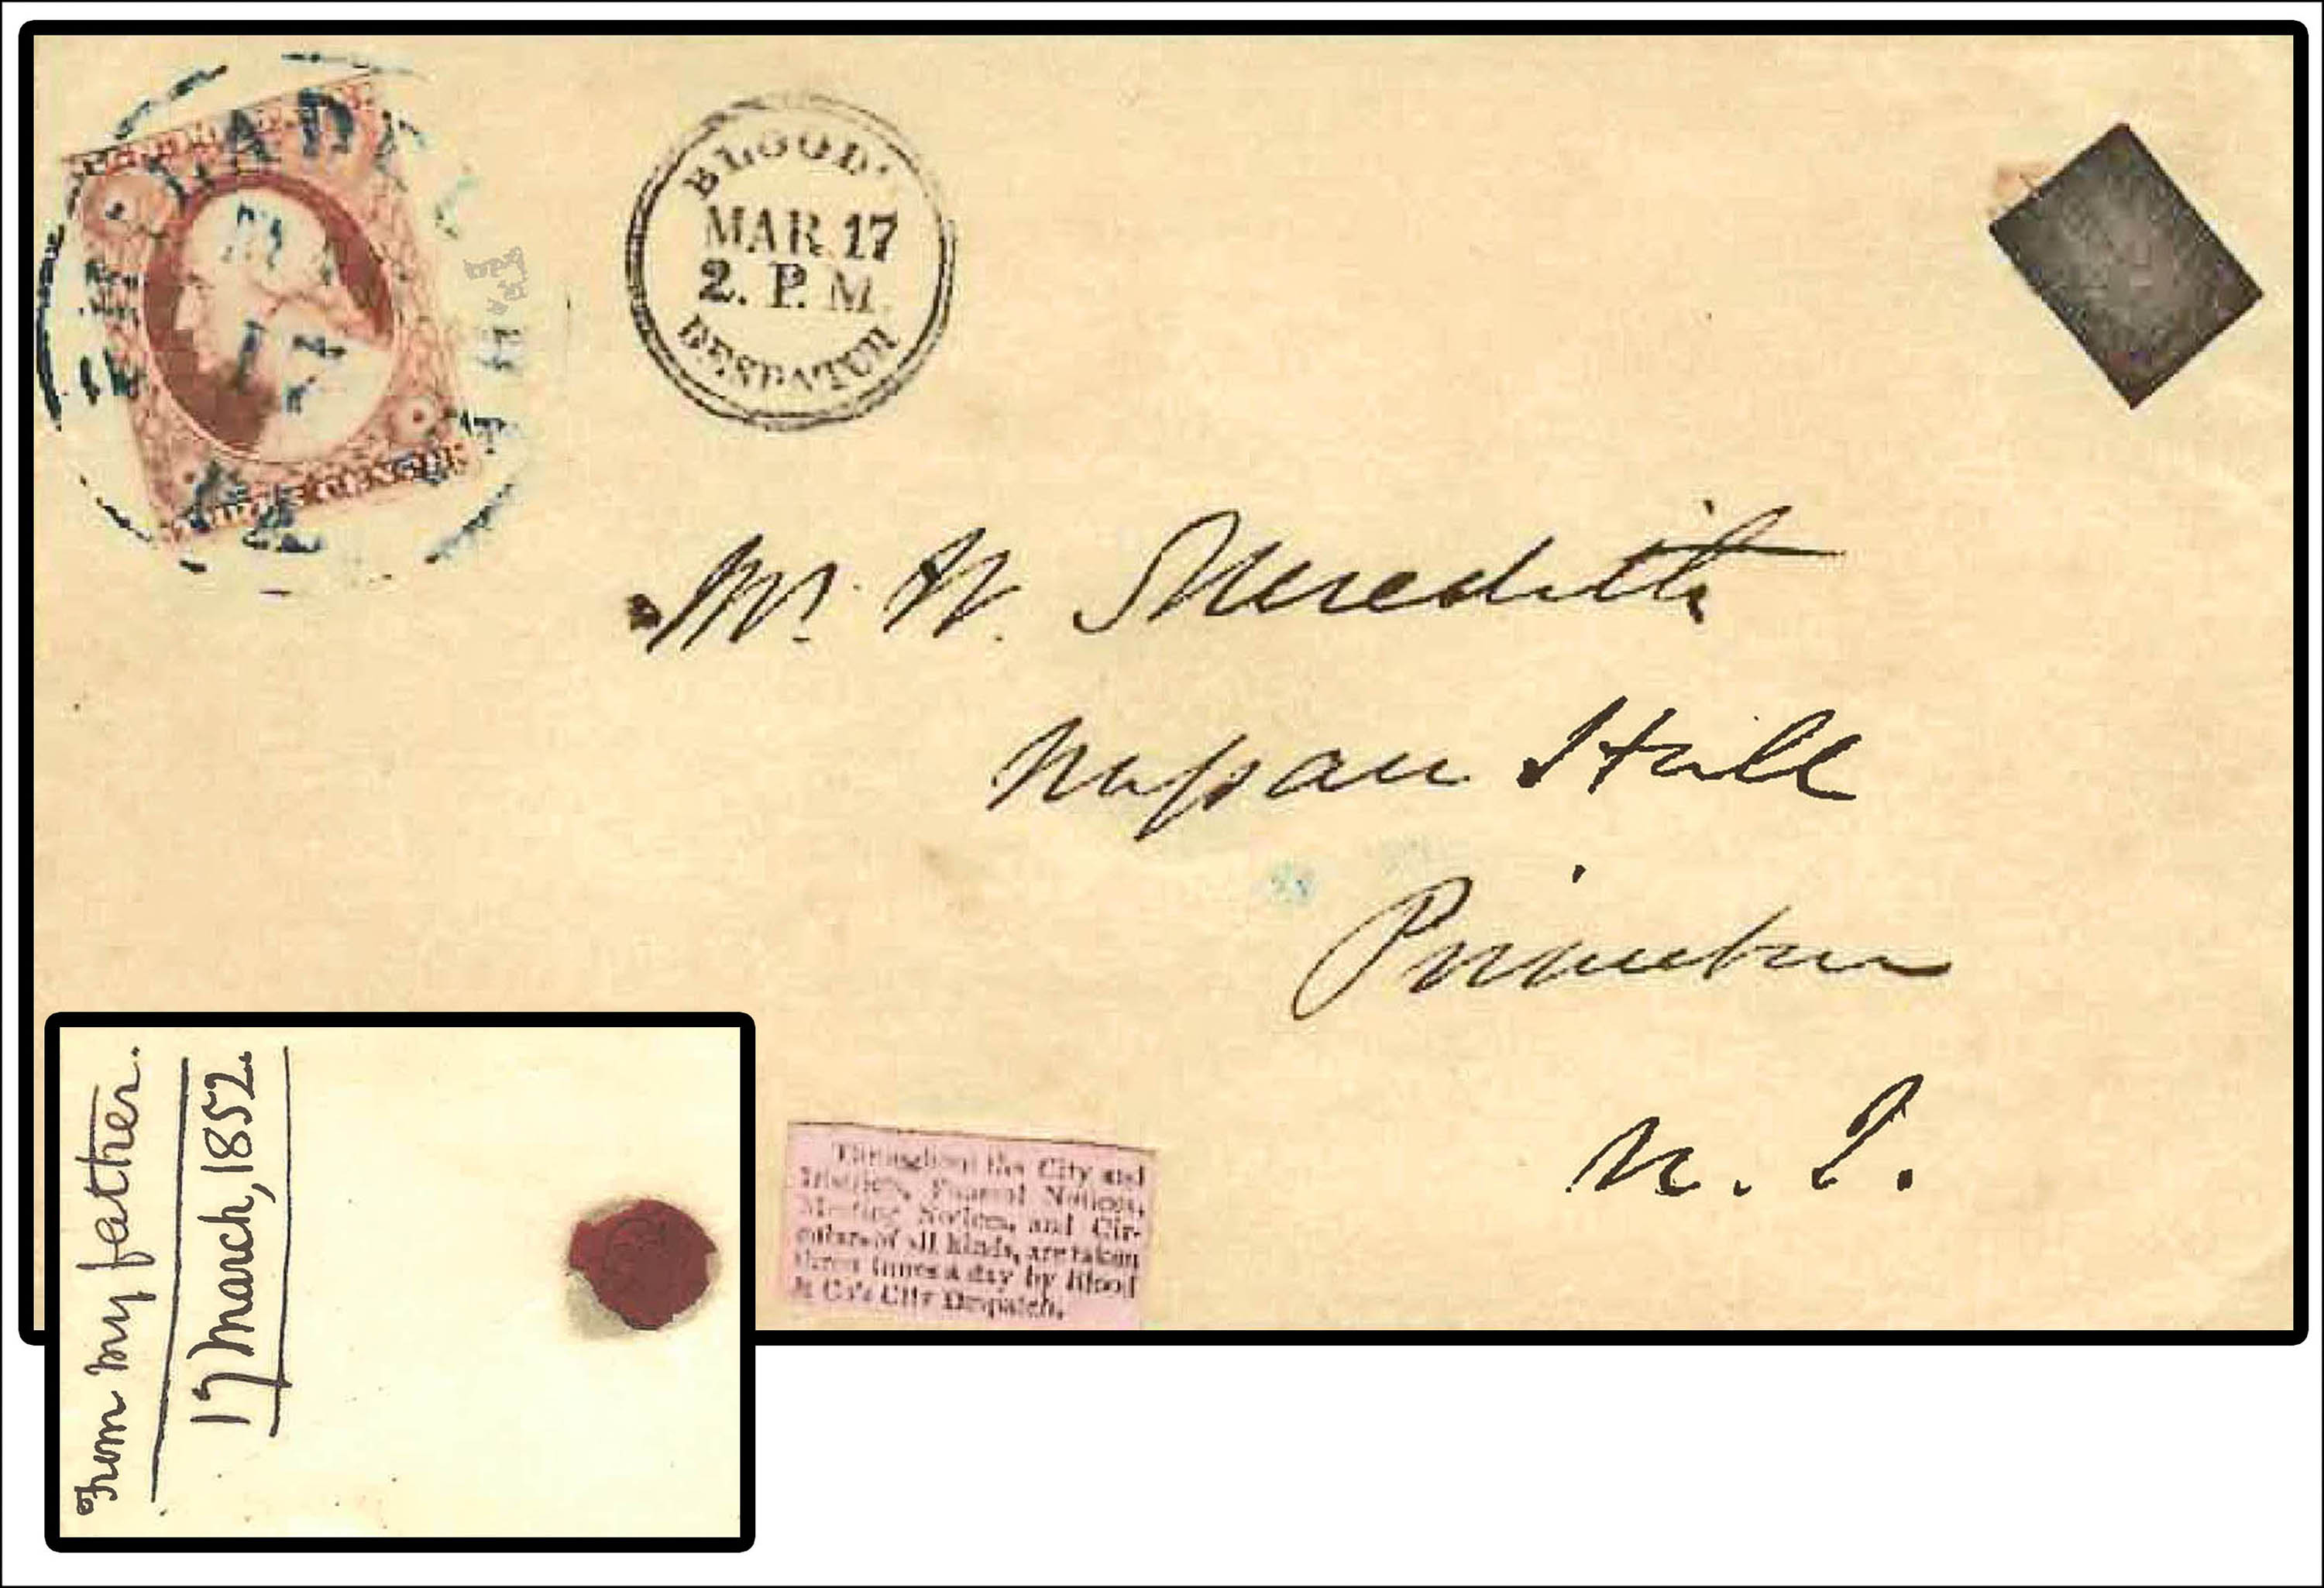 BLOOD'S
MAR 17
2. P. M.
DESPATCH
Mr. W. Meredith
Nassau Hall
Princeton
N. J.
Throughout the City and
Districts, Funeral Notices,
Meeting Notices, and Cir-
culars of all kinds, are taken
three times a day by Blood
& Co's City Despatch.
From my father.
17 March, 1852.